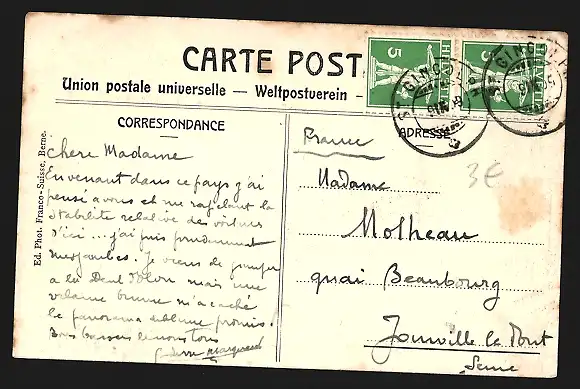 CARTE POST
Union postale universelle — Weltpostverein —
CORRESPONDANCE
ADRESSE
HELVE
5
HELVE
5
St GINGOLPH
St GINGOLPH
Ed. Phot. Franco-Suisse, Berne.
Chère Madame
En venant dans ce pays j'ai
pensé à vous et me rappelant la
stabilité relative des voitures
d'ici ... j'ai pris prudemment
mes jambes. Je viens de grimper
à la Dent d'Oche mais une
vilaine brume m'a caché
le panorama sublime promis.
tous
France
Madame
Molheau
quai Beaubourg
Joinville le Pont
Seine
3€